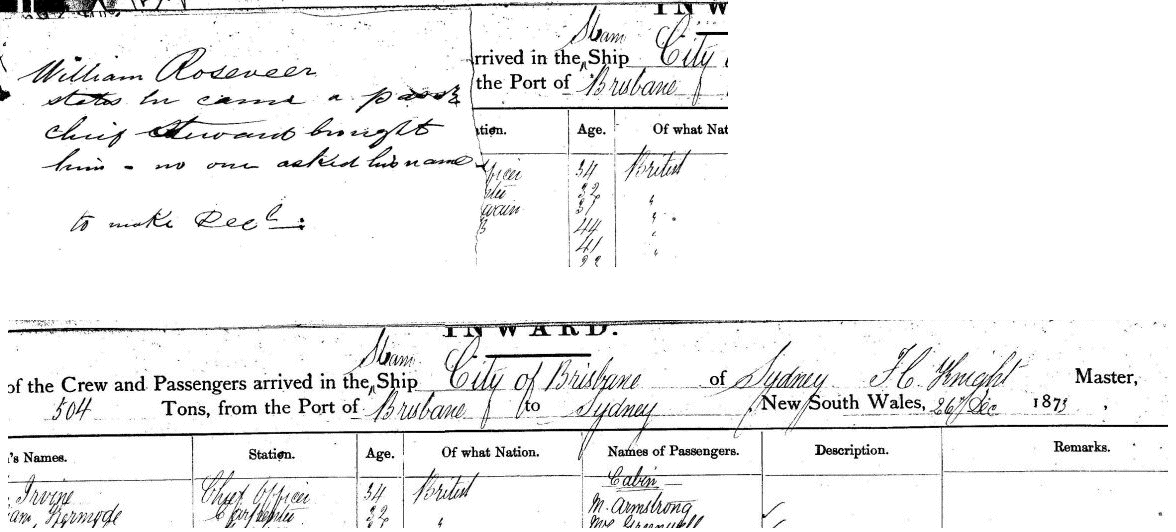 INWARD.
William Roseveer
states he came a passr
chief steward brought
him - no one asked his name
to make Decl:
Steam
rrived in the Ship City
the Port of Brisbane
tion. Age. Of what Nat
fficer 34 British
32 "
wain 37 "
44 "
41 "
INWARD.
Steam
of the Crew and Passengers arrived in the Ship City of Brisbane of Sydney F C Knight Master,
504 Tons, from the Port of Brisbane to Sydney New South Wales, 26th Dec 1873,
's Names. Station. Age. Of what Nation. Names of Passengers. Description. Remarks.
Cabin
Irvine Chief Officer 34 British
M. Armstrong
Kermode Carpenter 32 "